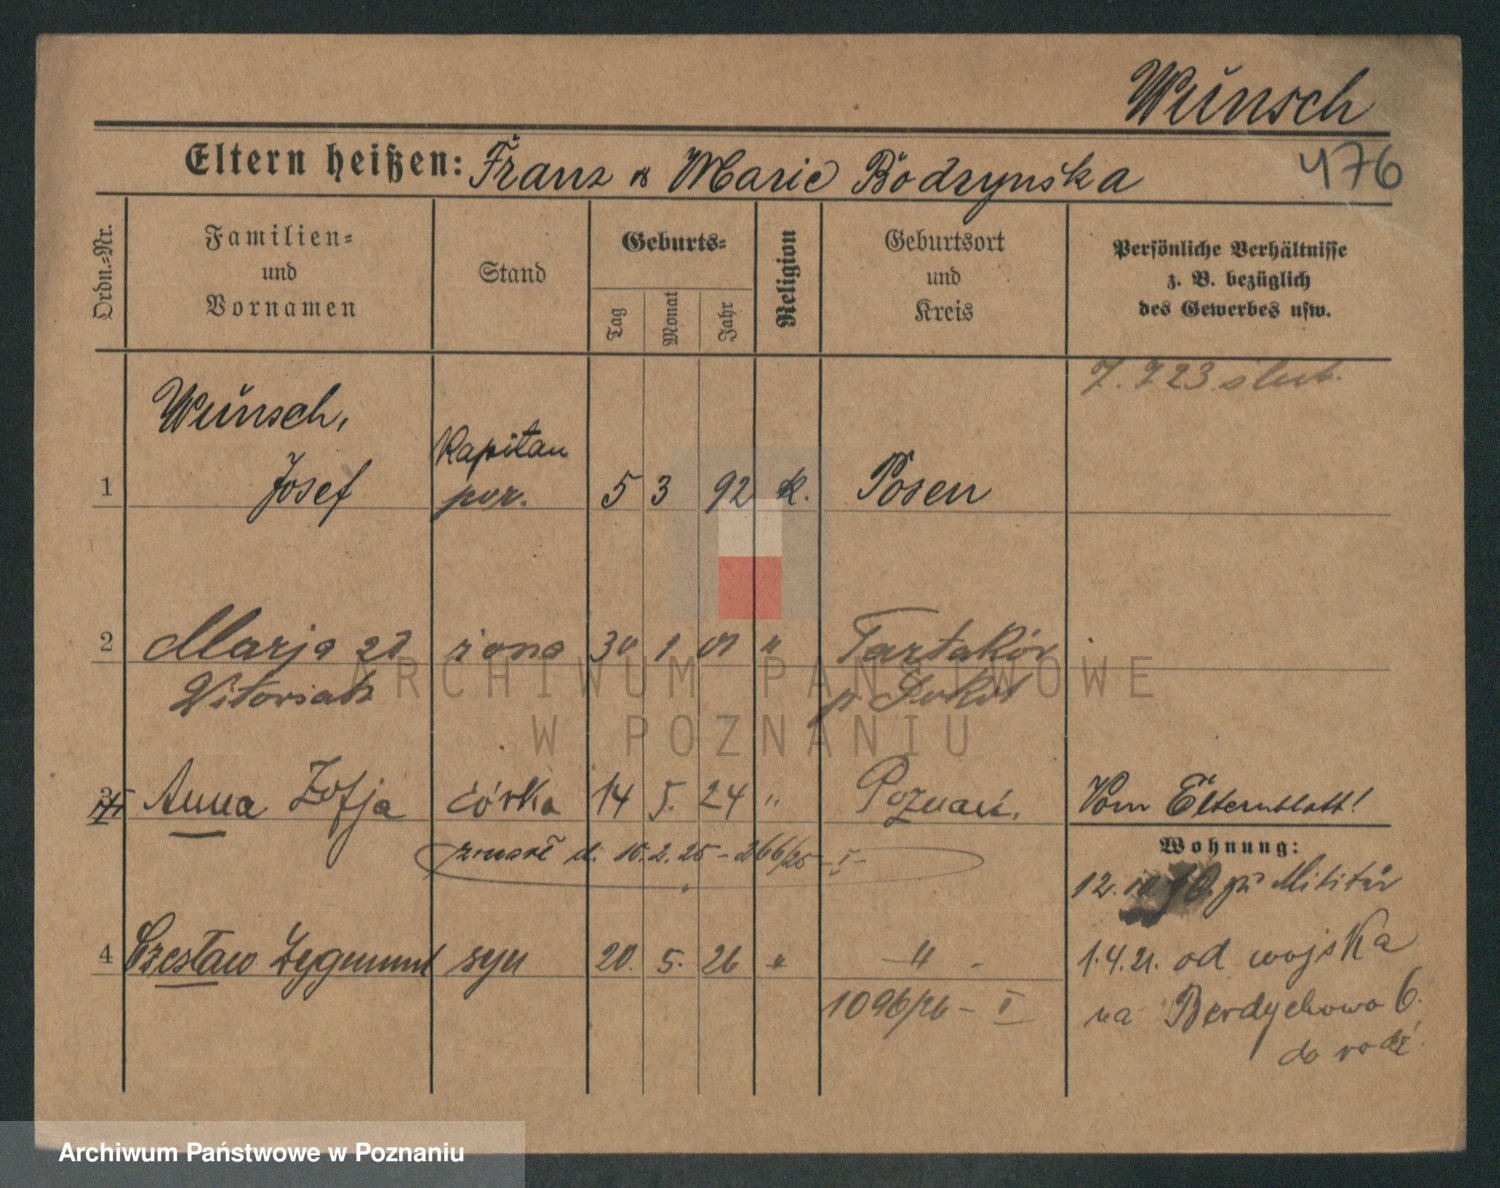 Wünsch
476
Eltern heißen: Franz & Marie Bodzynska
Ordn.-Nr.
Familien-
und
Vornamen
Stand
Geburts-
Tag
Monat
Jahr
Religion
Geburtsort
und
Kreis
Persönliche Verhältnisse
z. B. bezüglich
des Gewerbes usw.
7. 7 23 ślub.
Wünsch,
1 Josef Kapitan por. 5 3 92 k. Posen
2 Marja zd żona 30 1 01 " Tartaków
Witoriak p. Sokal
3 Anna Zofja córka 14 5. 24 " Poznań. Vom Elternblatt!
zmarł d. 10.2.25 - 266/25 - I -
Wohnung:
12. 10 zu Militär
4 Czesław Zygmunt syn 20. 5. 26 " - " - 1.4.21. od wojska
1096/26 - I
na Berdychowo 6.
do rodz.
ARCHIWUM PAŃSTWOWE
W POZNANIU
Archiwum Państwowe w Poznaniu